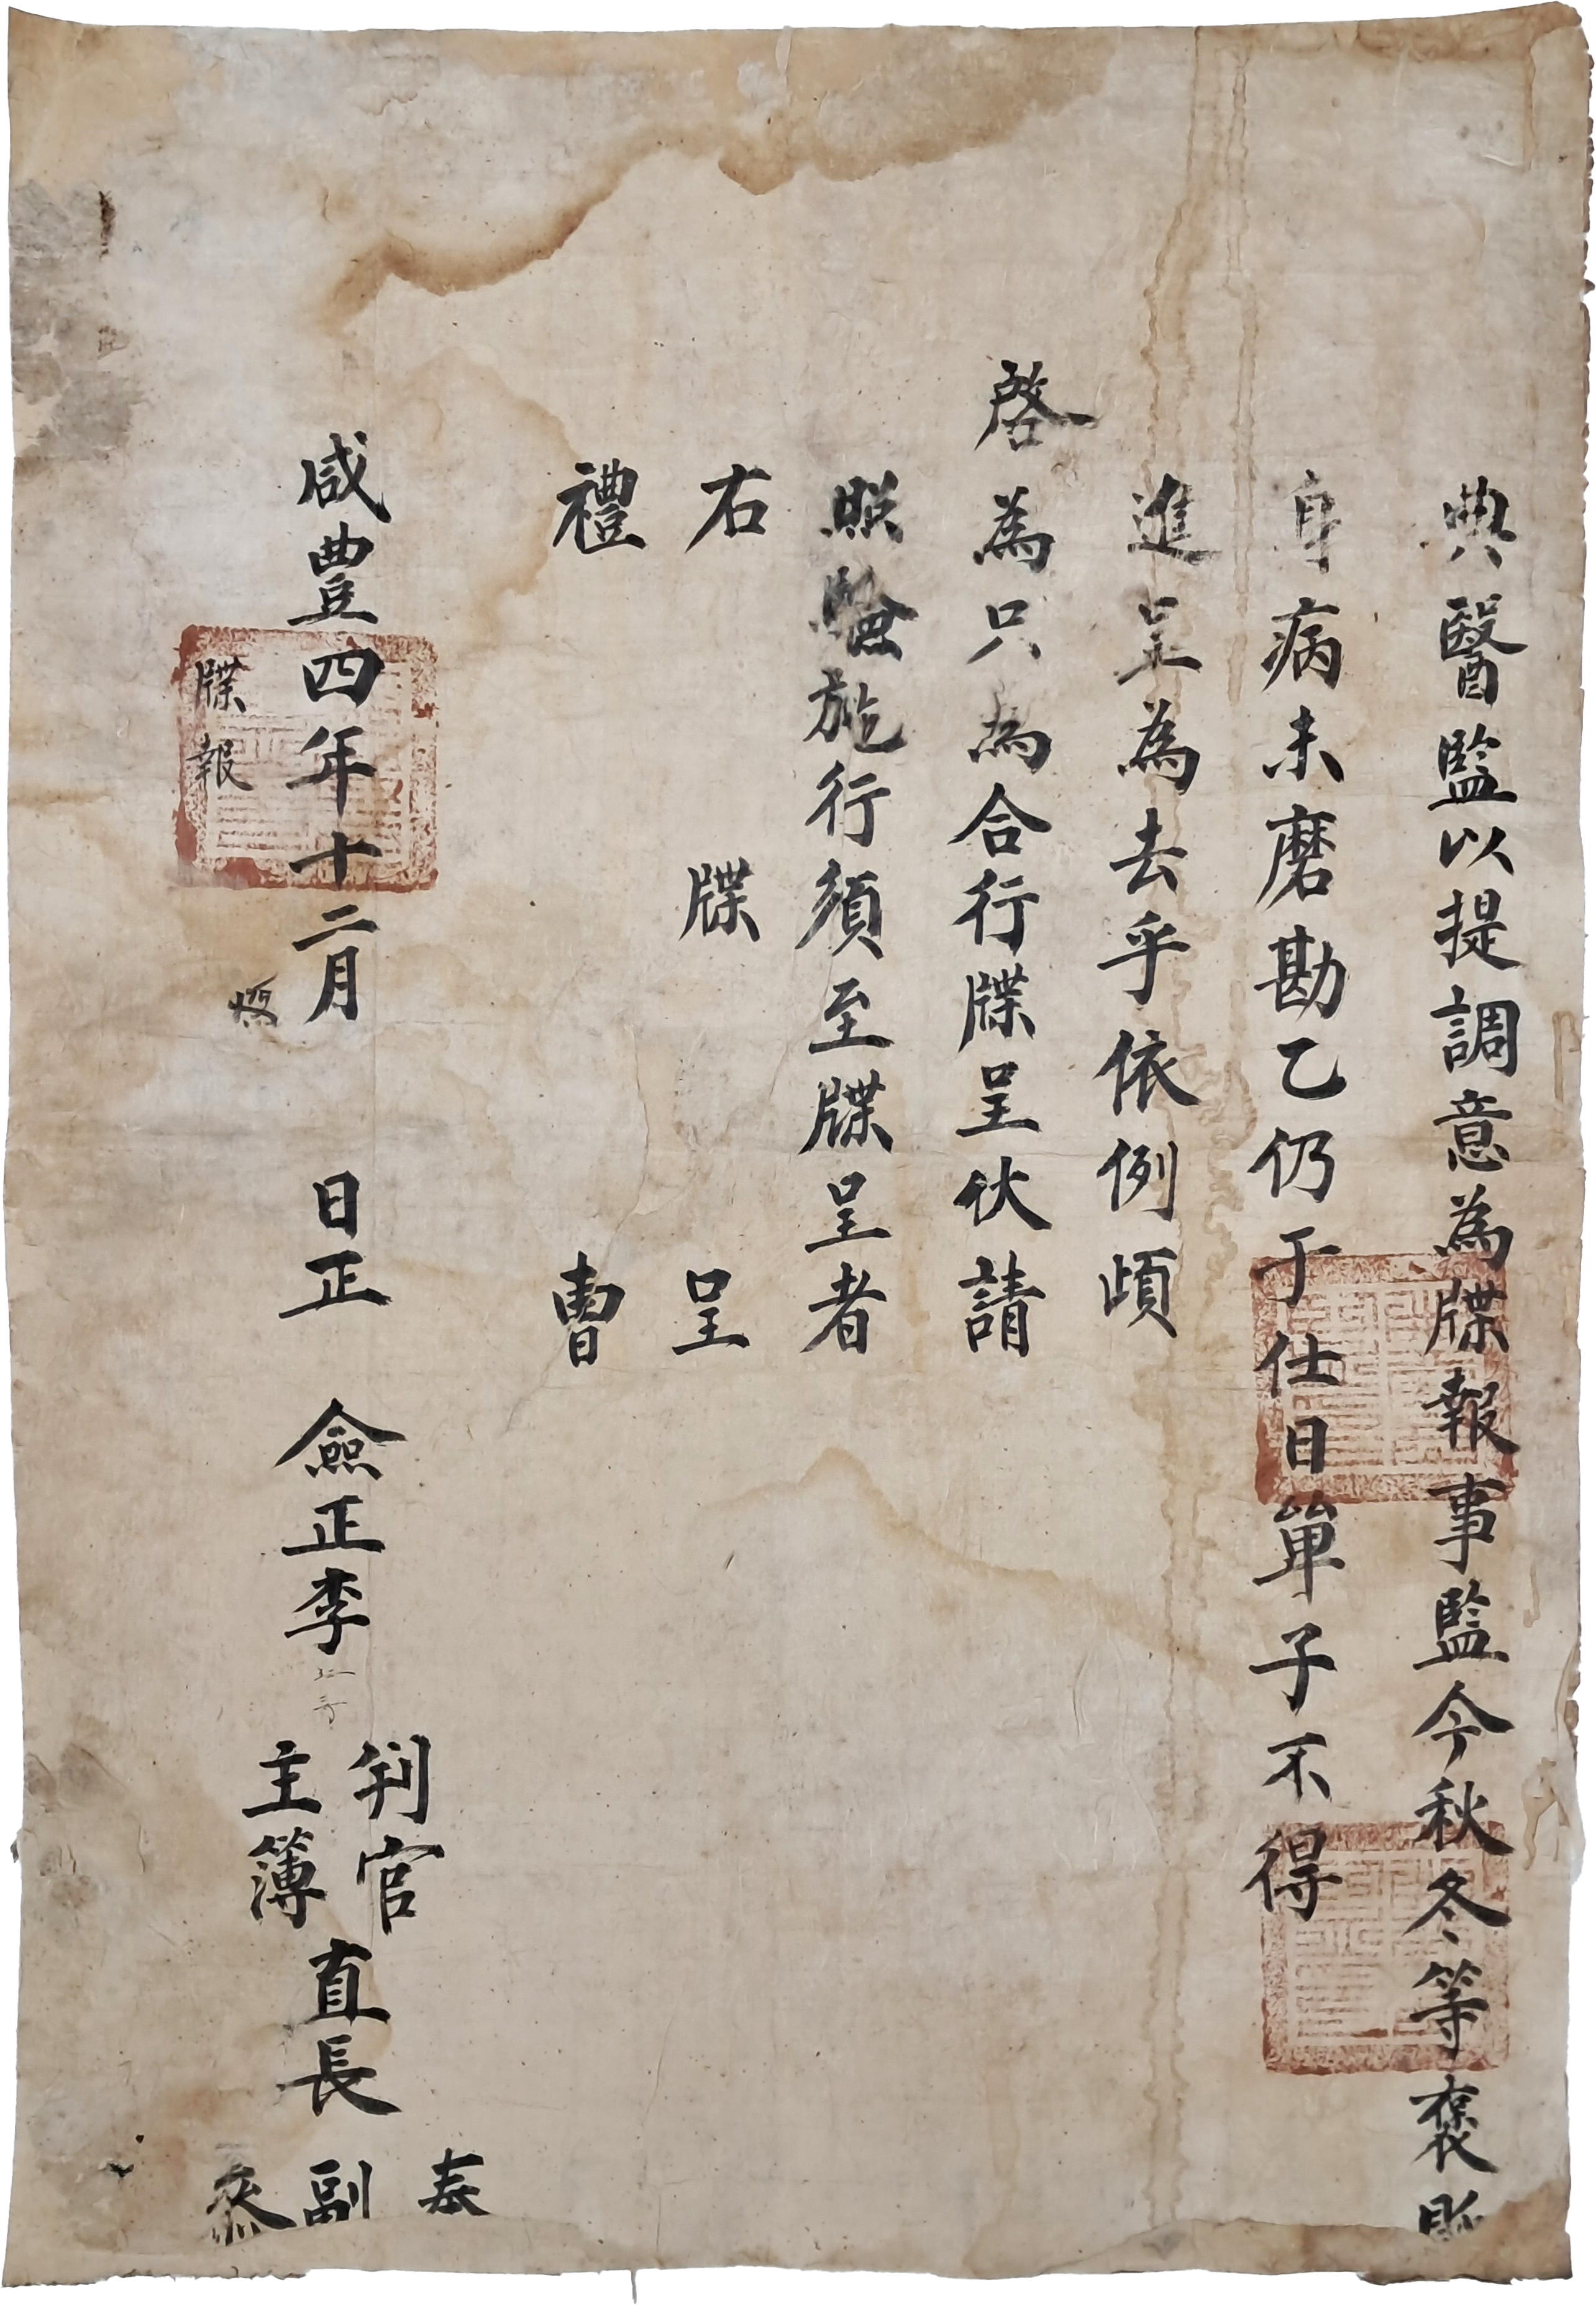 典醫監以提調意為牒報事監今秋冬等褒貶
身病未磨勘乙仍于仕日單子不得
進呈為去乎依例頉
啓為只為合行牒呈伏請
照驗施行須至牒呈者
右牒呈
禮曹
咸豊四年十二月日正 僉正李
判官
主簿
直長
奉
副
叅
牒報